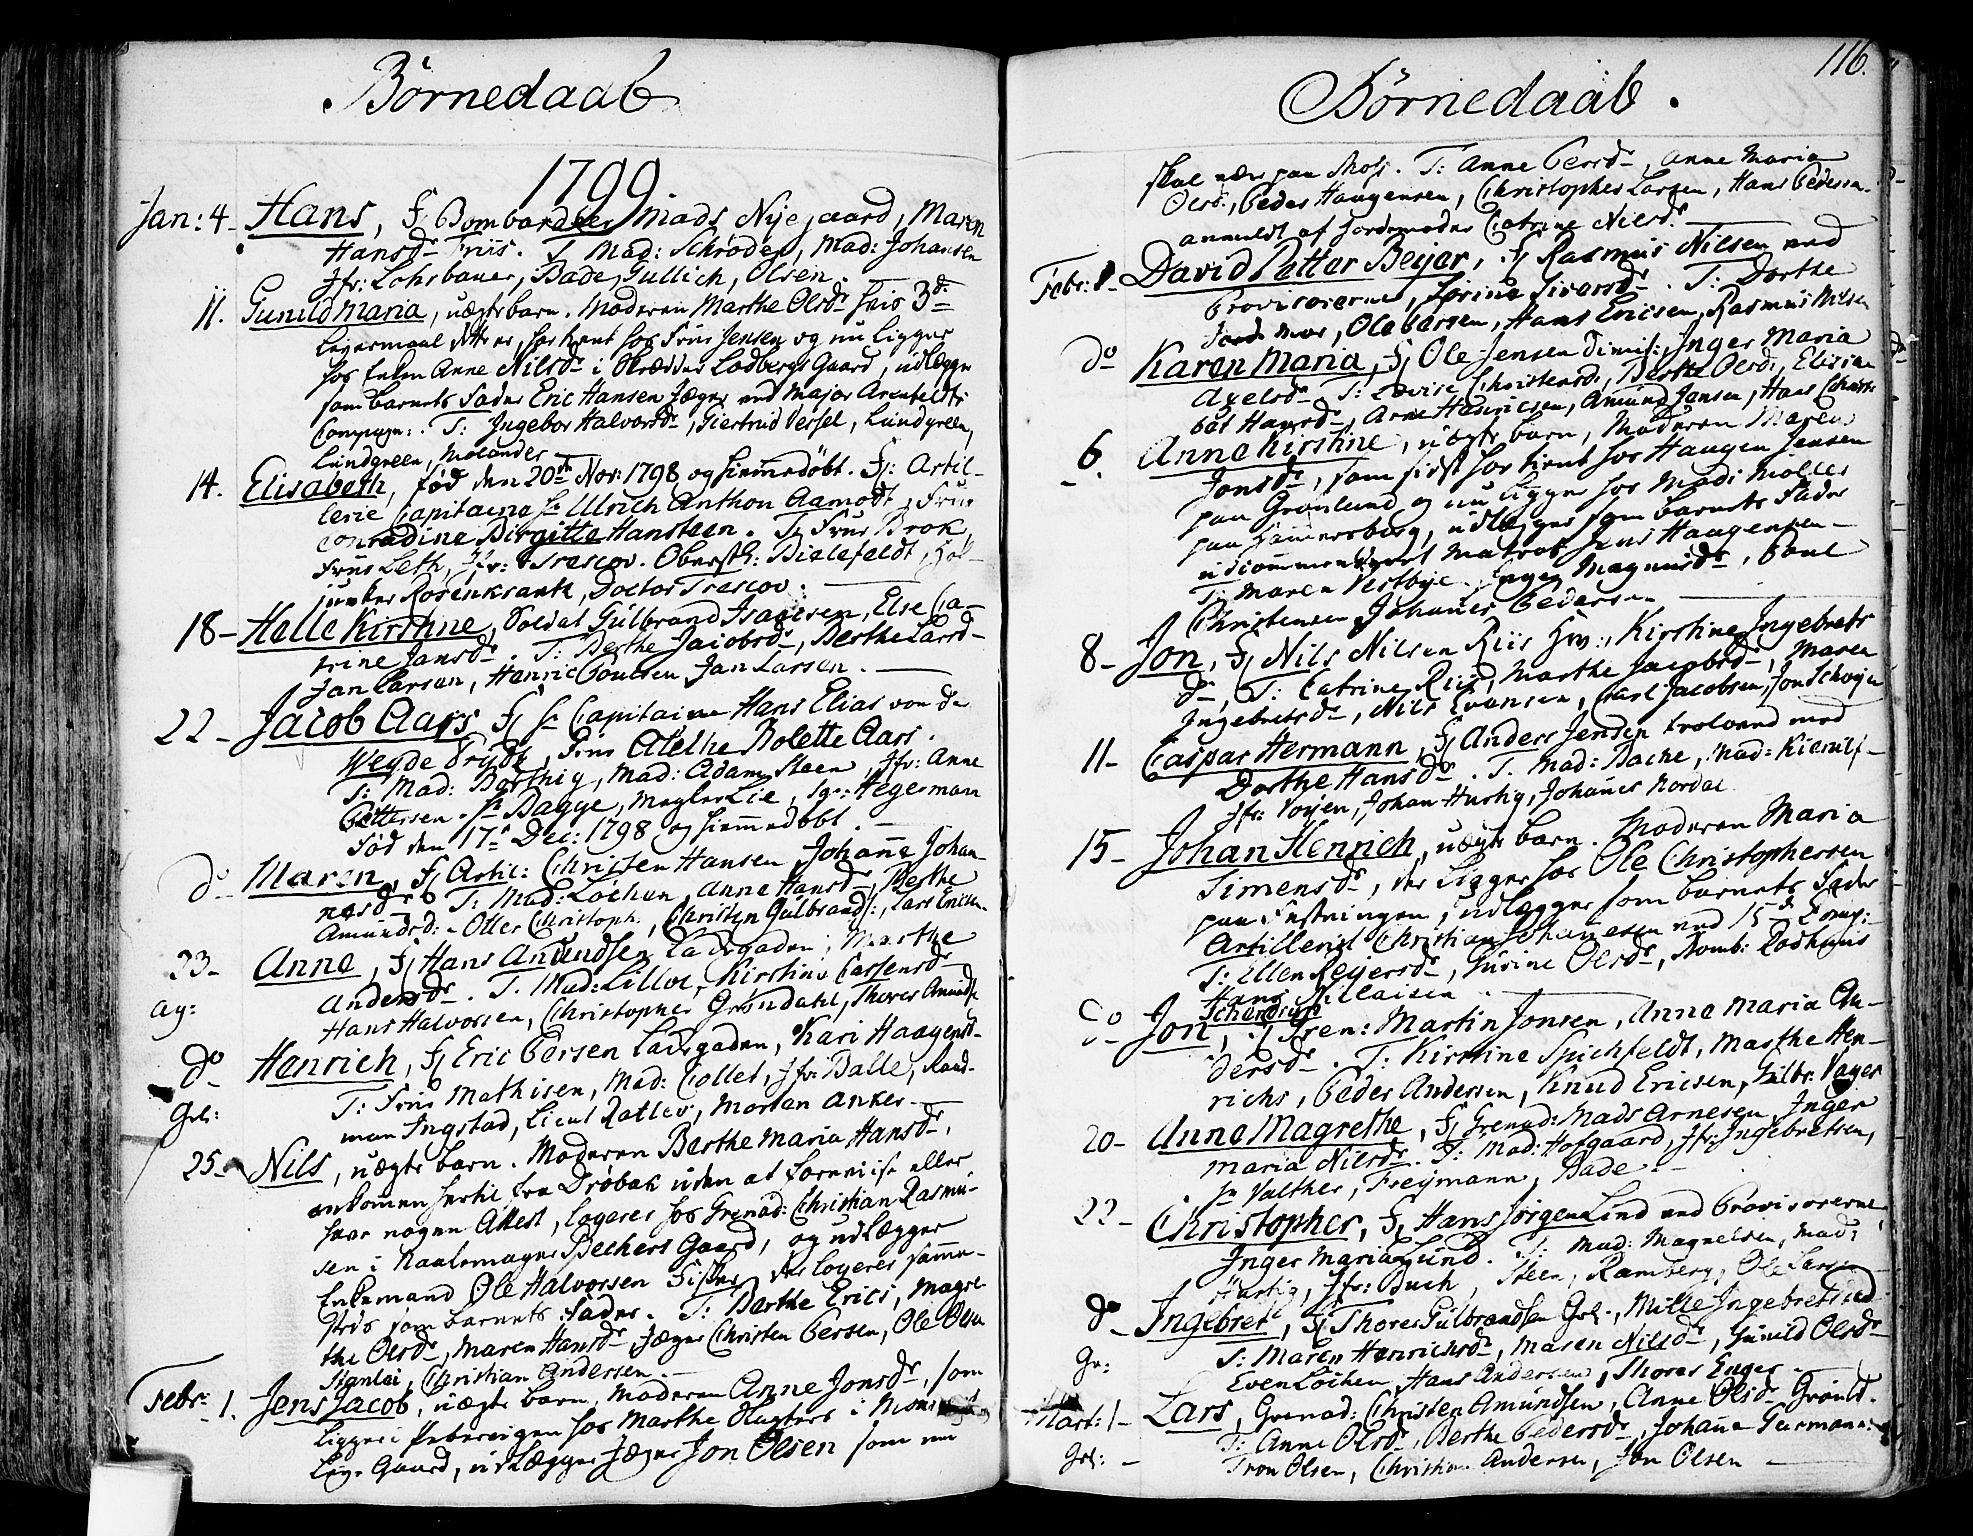 Børnedaab
1799.
Jan: 4. Hans, F. Bombardeer Mads Nyegaard, Maren
Hansd. Friis. T. Mad: Schrøder, Mad: Johansen
Jfr: Lohrbauer, Bade, Gullich, Olsen.
11. Gunild Maria, uægte barn. Moderen Marthe Olsd. hvis 3de
Leiermaal dette er, har tient hos Frue Jensen og nu ligger
hos Enken Anne Nilsd. i Skrædder Lodbergs Gaard, udlægger
som barnets Fader Eric Hansen Jæger ved Major Arenfeldts
Compagn: T: Ingebor Halvorsd., Giertrud Vessel, Lundgreen,
Lundgreen, Molander
14. Elisabeth, fød den 20de Nov: 1798 og hiemmedøbt. F: Artil-
lerie Capitaine Hr. Ulrich Anthon Aamodt, Frue
Conradine Birgitte Hansteen. T. Frue Brok,
Frue Leth, Jfr: Trescov. Oberstl: Bielefeldt, Hof-
junker Rosenkrantz, Doctor Trescov.
18- Helle Kirstine, Soldat Gulbrand Isacsen, Else Ca-
trine Jansd. T: Berthe Jacobsd., Berthe Larsd.
Jan Larsen, Henric Poulsen, Jan Larsen.
22- Jacob Aars F. Hr. Capitaine Hans Elias von der
Weyde Trydtz, Frue Alethe Bolette Aars.
T: Mad: Barthig, Mad: Adam Steen, Jfr: Anne
Pettersen. Hr. Bagge, Mægler Lie, Sgr: Hegermann
Fød den 17de Dec: 1798 og hiemmedøbt.
do Maren, F. Artil: Christen Hansen, Johanne Johan-
nesd. T: Mad: Løchen, Anne Hansd., Berthe
Amundsd. Otter Christoph., Christen Gulbrands:, Lars Ericsen.
23- Anne, F. Hans Amundsen Ladegaden, Marthe
Ag: Andersd. T. Mad: Lilloe, Kirstine Carstensd.
Hans Halvorsen, Christopher Grøndahl, Thores Amunds.
do Henrich, F. Eric Persen Ladegaden, Kari Haagensd.
T: Frue Mathisen, Mad: Collet, Jfr: Balle, Raad-
Grl: man Ingstad, Lieut Ratlev, Morten Anker
25- Nils, uægte barn. Moderen Berthe Maria Hansd.,
ankommen hertil fra Drøbak uden at forevise eller
have nogen Attest, logerer hos Grenad: Christian Rasmu-
sen i Naalemager Bechers Gaard, og udlægger
Enkemand Ole Halvorsen Fisker, der logerer samme-
steds som barnets Fader. T: Berthe Erics, Magre-
the Olsd., Maren Hansd. Jæger Christen Persen, Ole Olsen
Stanlei, Christian Andersen.
Febr. 1. Jens Jacob, uægte barn, Moderen Anne Jonsd., som
ligger i Pebervigen hos Marthe Slagters i
Gaard, udlægger Jæger Jon Olsen som nu
116.
Børnedaab.
skal være paa Moss. T: Anne Persd., Anne Maria
Olsd., Peder Haagensen, Christopher Larsen, Hans Pedersen.
anmeldt af Jordemoder Catrine Nilsd.
Febr: 1- David Petter Beijer, F. Rasmus Nilsen ved
Provisorerne, Sirine Siversd. T: Dorthe
Mor, Ole Larsen, Hans Ericsen, Rasmus Nilsen
do Karen Maria, F. Ole Jensen dimis:, Inger Maria
Axelsd. T: Lovise Christensd., Berthe Olsd., Elisa-
bet Hansd., Arne Henricsen, Amund Jansen, Hans Christ.
6. Anne Kirstine, uægte barn, Moderen Maren
Jonsd., som sidst har tient hos Haagen Jensen
paa Grønland og nu ligger hos Mads Møller
paa Hammersborg, udlægger som barnets Fader
udcommenderet Matros Jens Haagensen
T: Maren Vestbye. Engeg Magnusd., Poul
Christensen, Johanes Pedersen
8- Jon, F. Nils Nilsen Riis Hv:, Kirstine Ingebrets
d., T: Catrine Riis, Marthe Jacobsd., Maren
Ingebretsd., Nils Evensen, Carl Jacobsen, Jon Schoyen
11- Caspar Hermann, F. Anders Jensen Trolvand med
Dorthe Hansd. T. Mad: Bache, Mad: Kierulf
Jfr: Voyen, Johan Hustig, Johanes Nordal
15- Johan Henrich, uægte barn. Moderen Maria
Simensd., der ligger hos Ole Christophersen
paa Fæstningen, udlægger som barnets Fader
Artillerist Christian Johanesen ved 15de Comp:
T: Ellen Reyersd., Gurine Olsd., Bomb: Rodhuus
Hans Nicolaisen
Schandrup
do Jon, F. Gren: Martin Jonsen, Anne Maria An-
dersd. T: Kirstine Spichfeldt, Marthe Hen-
richs, Peder Andersen, Knud Ericsen, Gulbr: Vager
20- Anne Magrethe, F. Grenad: Mads Arnesen, Inger
Maria Nilsd. T: Mad: Hofgaard, Jfr: Ingebretsen,
Hr Valther, Freymann, Bade
22- Christopher, F. Hans Jørgen Lind ved Provisorerne,
Inger Maria Lund. T: Mad: Magnelsen, Mad:
Hartig, Jfr: Buch, Steen, Ramberg, Ole Larsen
do Ingebret, F. Thores Gulbrandsen Grl., Mille Ingebretsd.
T: Maren Henrichsd., Maren Nilsd., Gunild Olsd.
Gr: Even Løchen, Hans Andersen, Thores Enger
Mart: 1- Lars, Grenad: Christen Amundsen, Anne Olsd. Grønl.
T: Anne Olsd., Berthe Pedersd., Johane Garmann:
Grl: Tron Olsen, Christian Andersen, Jon Olsen